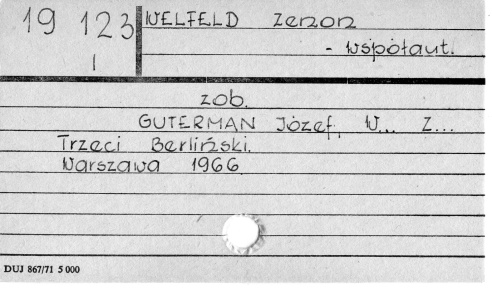 19 123
I
WELFELD Zenon
- współaut.
zob.
GUTERMAN Józef, W... Z...
Trzeci Berliński.
Warszawa 1966
DUJ 867/71 5 000